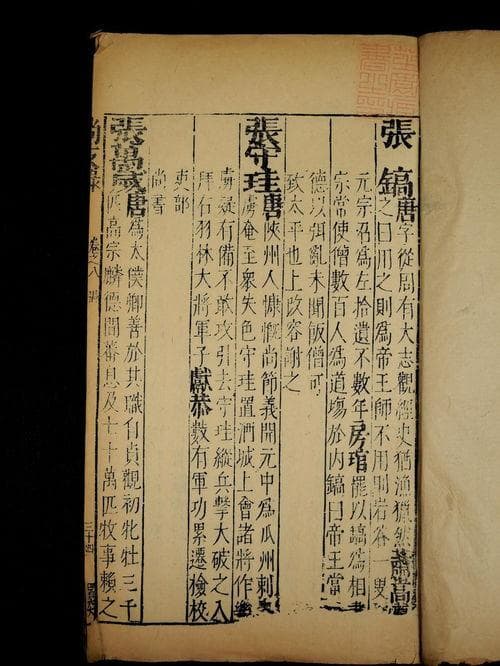 張鎬唐字從周有大志觀經史猶漁獵然蕭嵩
之曰用之則為帝王師不用則岩谷一叟
元宗召為左拾遺不數年房琯罷以鎬為相
宗常使僧數百人為道場於內鎬曰帝王當
德以弭亂未聞飯僧可
致太平也上改容謝之
張守珪唐陝州人慷慨尚節義開元中為瓜州刺
虜奄至衆失色守珪置酒城上會諸將作樂
虜疑有備不敢攻引去守珪縱兵擊大破之入
拜右羽林大將軍子獻恭數有軍功累遷檢校
吏部
尚書
張萬歲唐為太僕卿善於其職自貞觀初牝牡三千
匹高宗麟德間蕃息及七十萬匹牧事賴之
尚友錄
卷之八
三十四